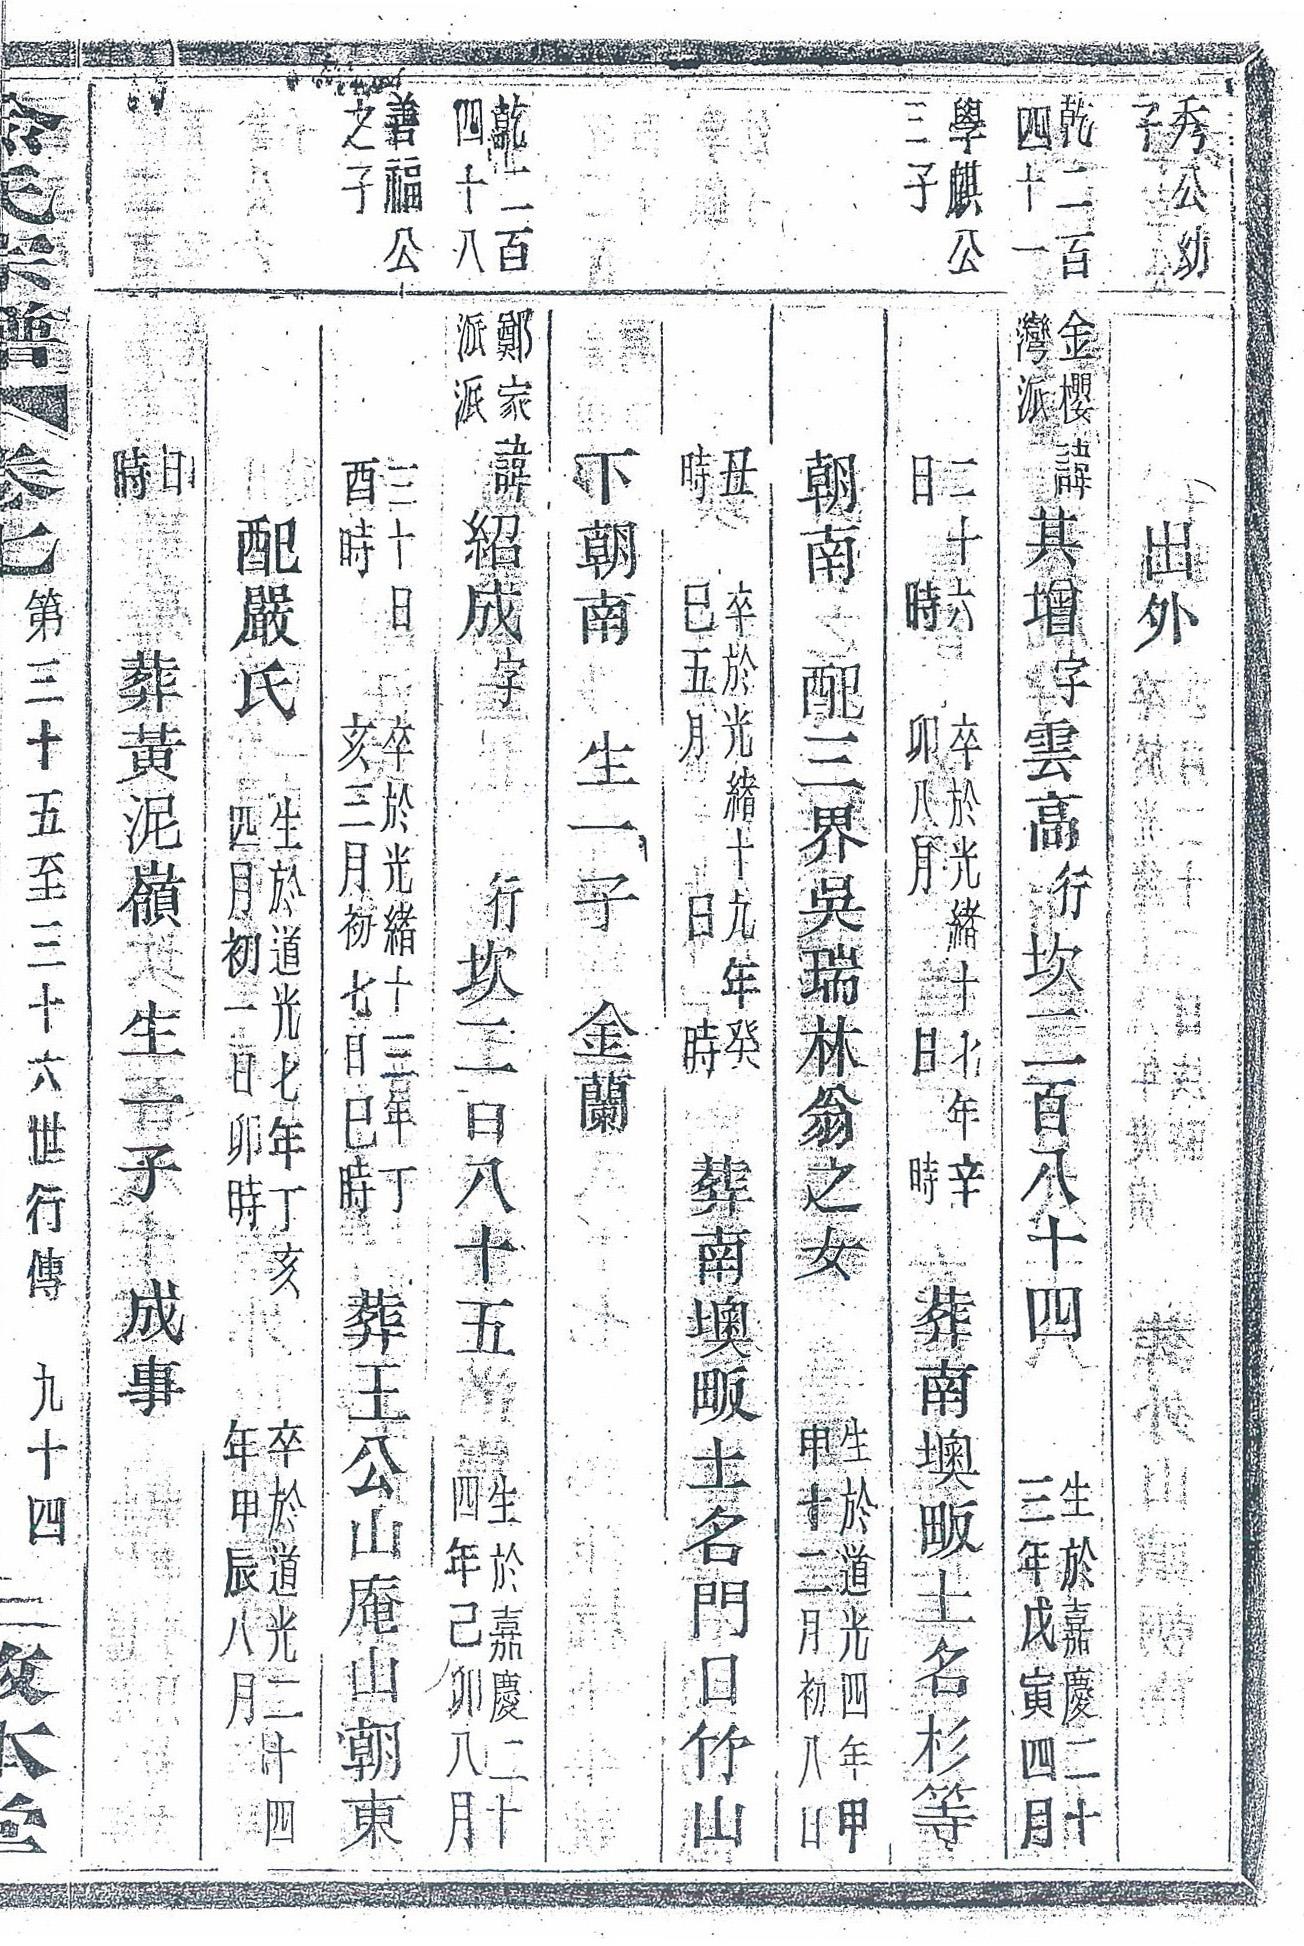 秀公幼
子
出外
乾二百
四十一
金櫻
灣派
諱其增字雲高行坎二百八十四
生於嘉慶二十
三年戊寅四月
學麒公
三子
二十六
日 時
卒於光緒十七年辛
卯八月 日 時
葬南墺畈土名杉等
朝南 配三界吳瑞林翁之女
生於道光四年甲
申十二月初八日
丑
時
卒於光緒十九年癸
巳五月 日 時
葬南墺畈土名門口竹山
下朝南 生一子 金蘭
乾二百
四十八
鄭家
派派
諱紹成字 行坎二百八十五
生於嘉慶二十
四年己卯八月
善福公
之子
三十日
酉時
卒於光緒十三年丁
亥三月初七日巳時
葬王公山庵山朝東
配嚴氏
生於道光七年丁亥
四月初一日卯時
卒於道光二十四
年甲辰八月
日
時
葬黃泥嶺 生一子 成事
氏宗譜 卷七 第三十五至三十六世行傳 九十四 敦本堂